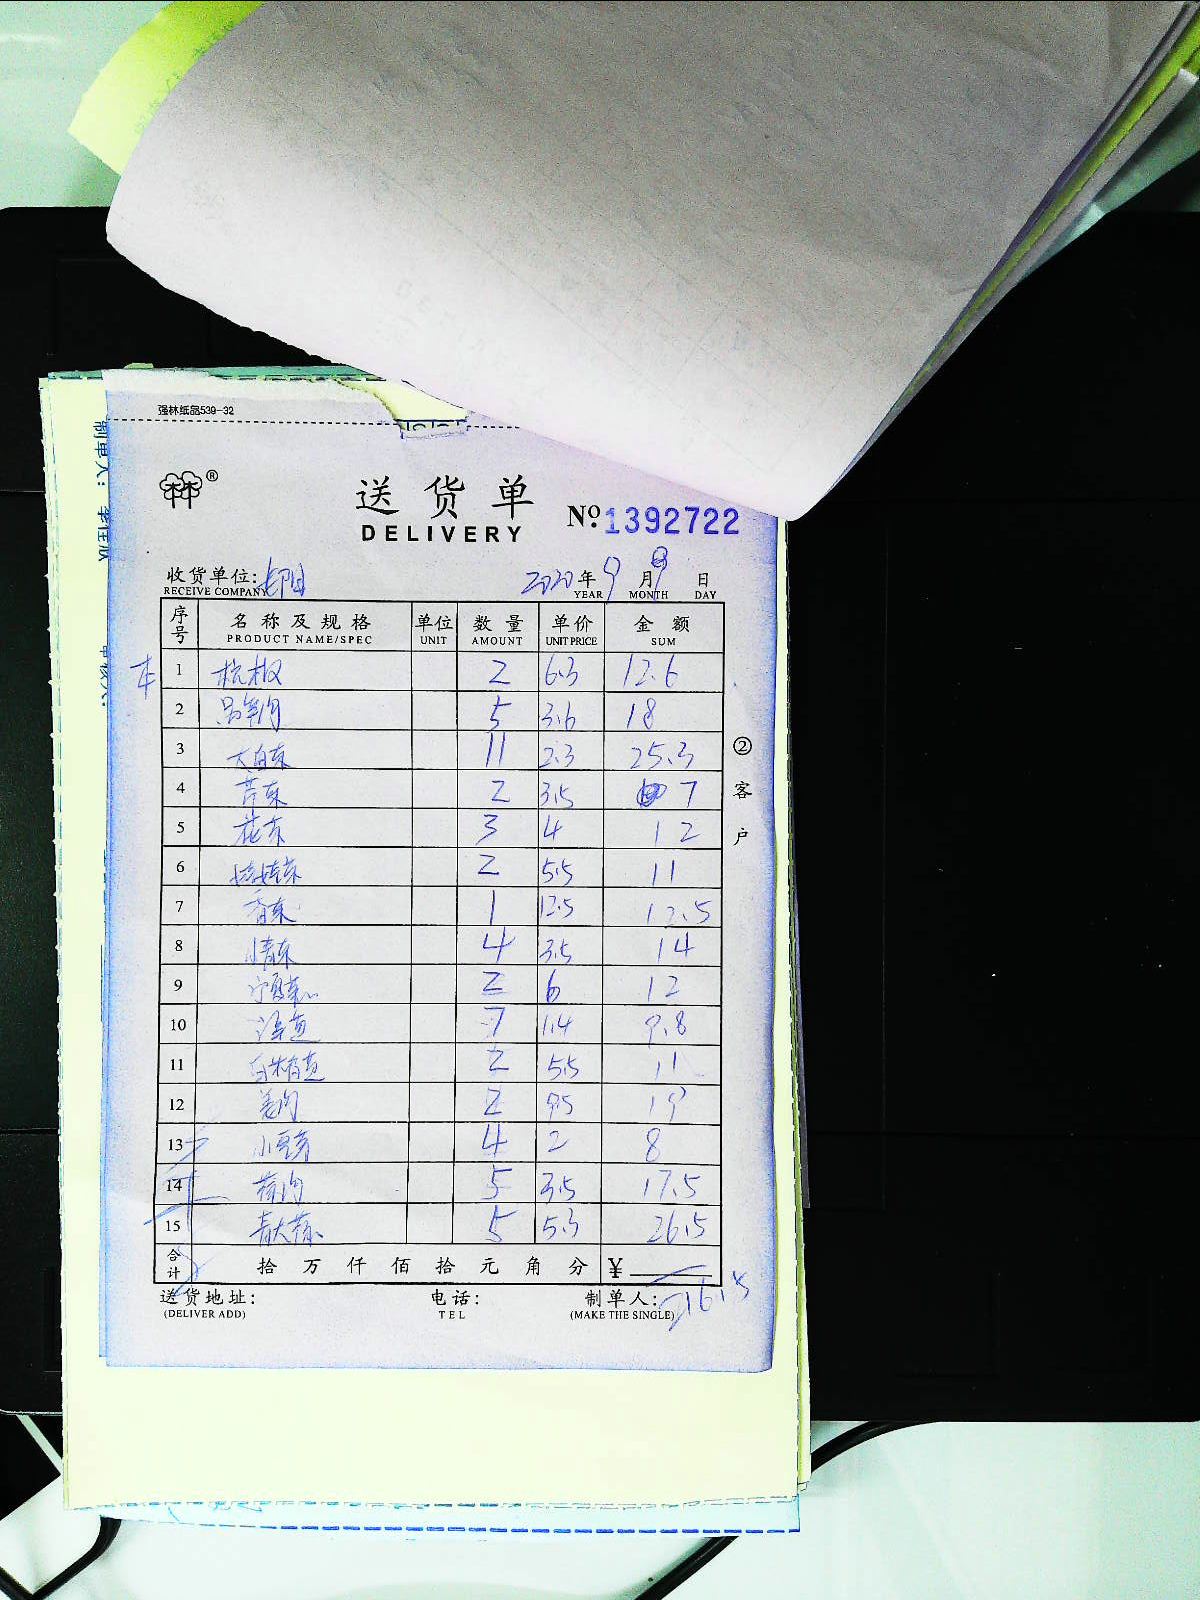 强林纸品539-32
制单人:
送货单
DELIVERY
No. 1392722
收货单位:
RECEIVE COMPANY
2020年9月9日
YEAR MONTH DAY
序号 名称及规格 单位 数量 单价 金额
PRODUCT NAME/SPEC UNIT AMOUNT UNIT PRICE SUM
1 杭椒 2 6.3 12.6
2 5 3.6 18
3 大白菜 11 2.3 25.3
4 芹菜 2 3.5 7
5 花菜 3 4 12
6 娃娃菜 2 5.5 11
7 香菜 1 12.5 12.5
8 小青菜 4 3.5 14
9 2 6 12
10 7 1.4 9.8
11 2 5.5 11
12 姜肉 2 9.5 19
13 小豆芽 4 2 8
14 5 3.5 17.5
15 5 5.3 26.5
合计 拾万仟佰拾元角分 ¥
216.5
送货地址: 电话: 制单人:
(DELIVER ADD) TEL (MAKE THE SINGLE)
②客户